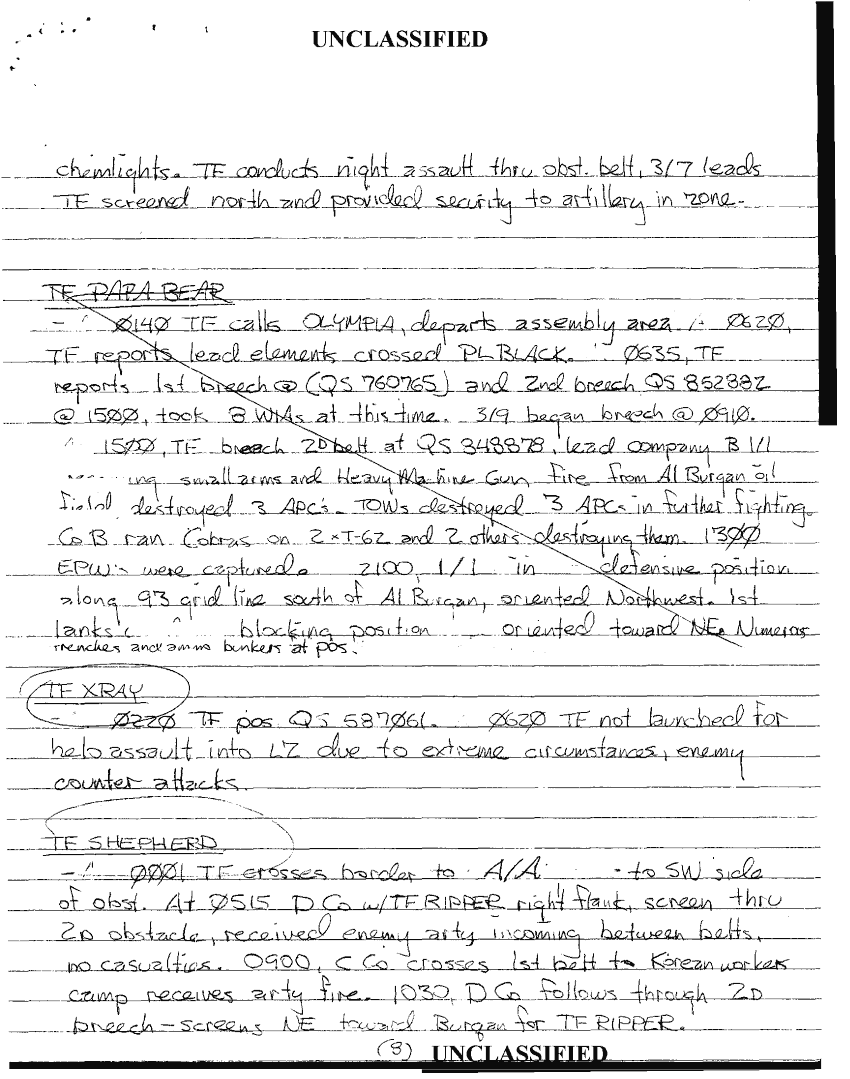 UNCLASSIFIED
chemlights. TF conducts night assault thru obst. belt, 3/7 leads
TF screened north and provided security to artillery in zone.
TF PAPA BEAR
- 0140 TF calls OLYMPIA, departs assembly area. 0620,
TF reports lead elements crossed PL BLACK. 0635, TF
reports 1st breech @ (QS 760765) and 2nd breech QS 852882
@ 1500, took 8 WIAs at this time. 3/9 began breech @ 0910.
1500, TF breech 2D belt at QS 348878, lead company B 1/1
ing small arms and Heavy Machine Gun fire from Al Burgan oil
field destroyed 3 APC's. TOWs destroyed 3 APCs in further fighting.
Co B ran Cobras on 2 T-62 and 2 others destroying them. 1300
EPW's were captured. 2100, 1/1 in defensive position
along 93 grid line south of Al Burgan, oriented Northwest. 1st
Tanks blocking position oriented toward NE. Numeros
trenches and ammo bunkers at pos.
TF XRAY
- 0220 TF pos QS 587061. 0620 TF not launched for
helo assault into LZ due to extreme circumstances, enemy
counter attacks.
TF SHEPHERD
- 0001 TF crosses border to A/A to SW side
of obst. At 0515 D Co w/TF RIPPER right flank, screen thru
2D obstacle, received enemy arty incoming between belts,
no casualties. 0900, C Co crosses 1st belt to Korean workers
camp receives arty fire. 1030, D Co follows through 2D
breech - screens NE toward Burgan for TF RIPPER.
(8) UNCLASSIFIED